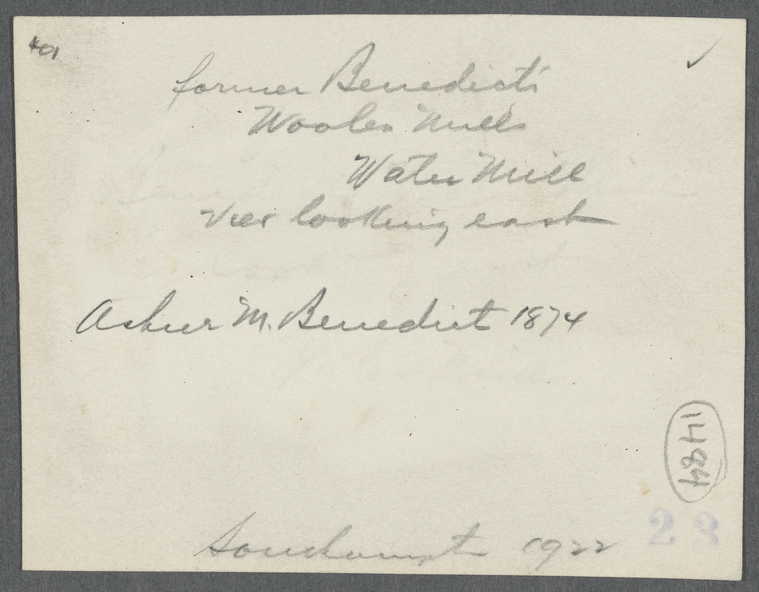 401
former Benedict's
Woolen Mills
Water Mill
view looking east
Asher M. Benedict 1874
1484
23
Southampt 1922